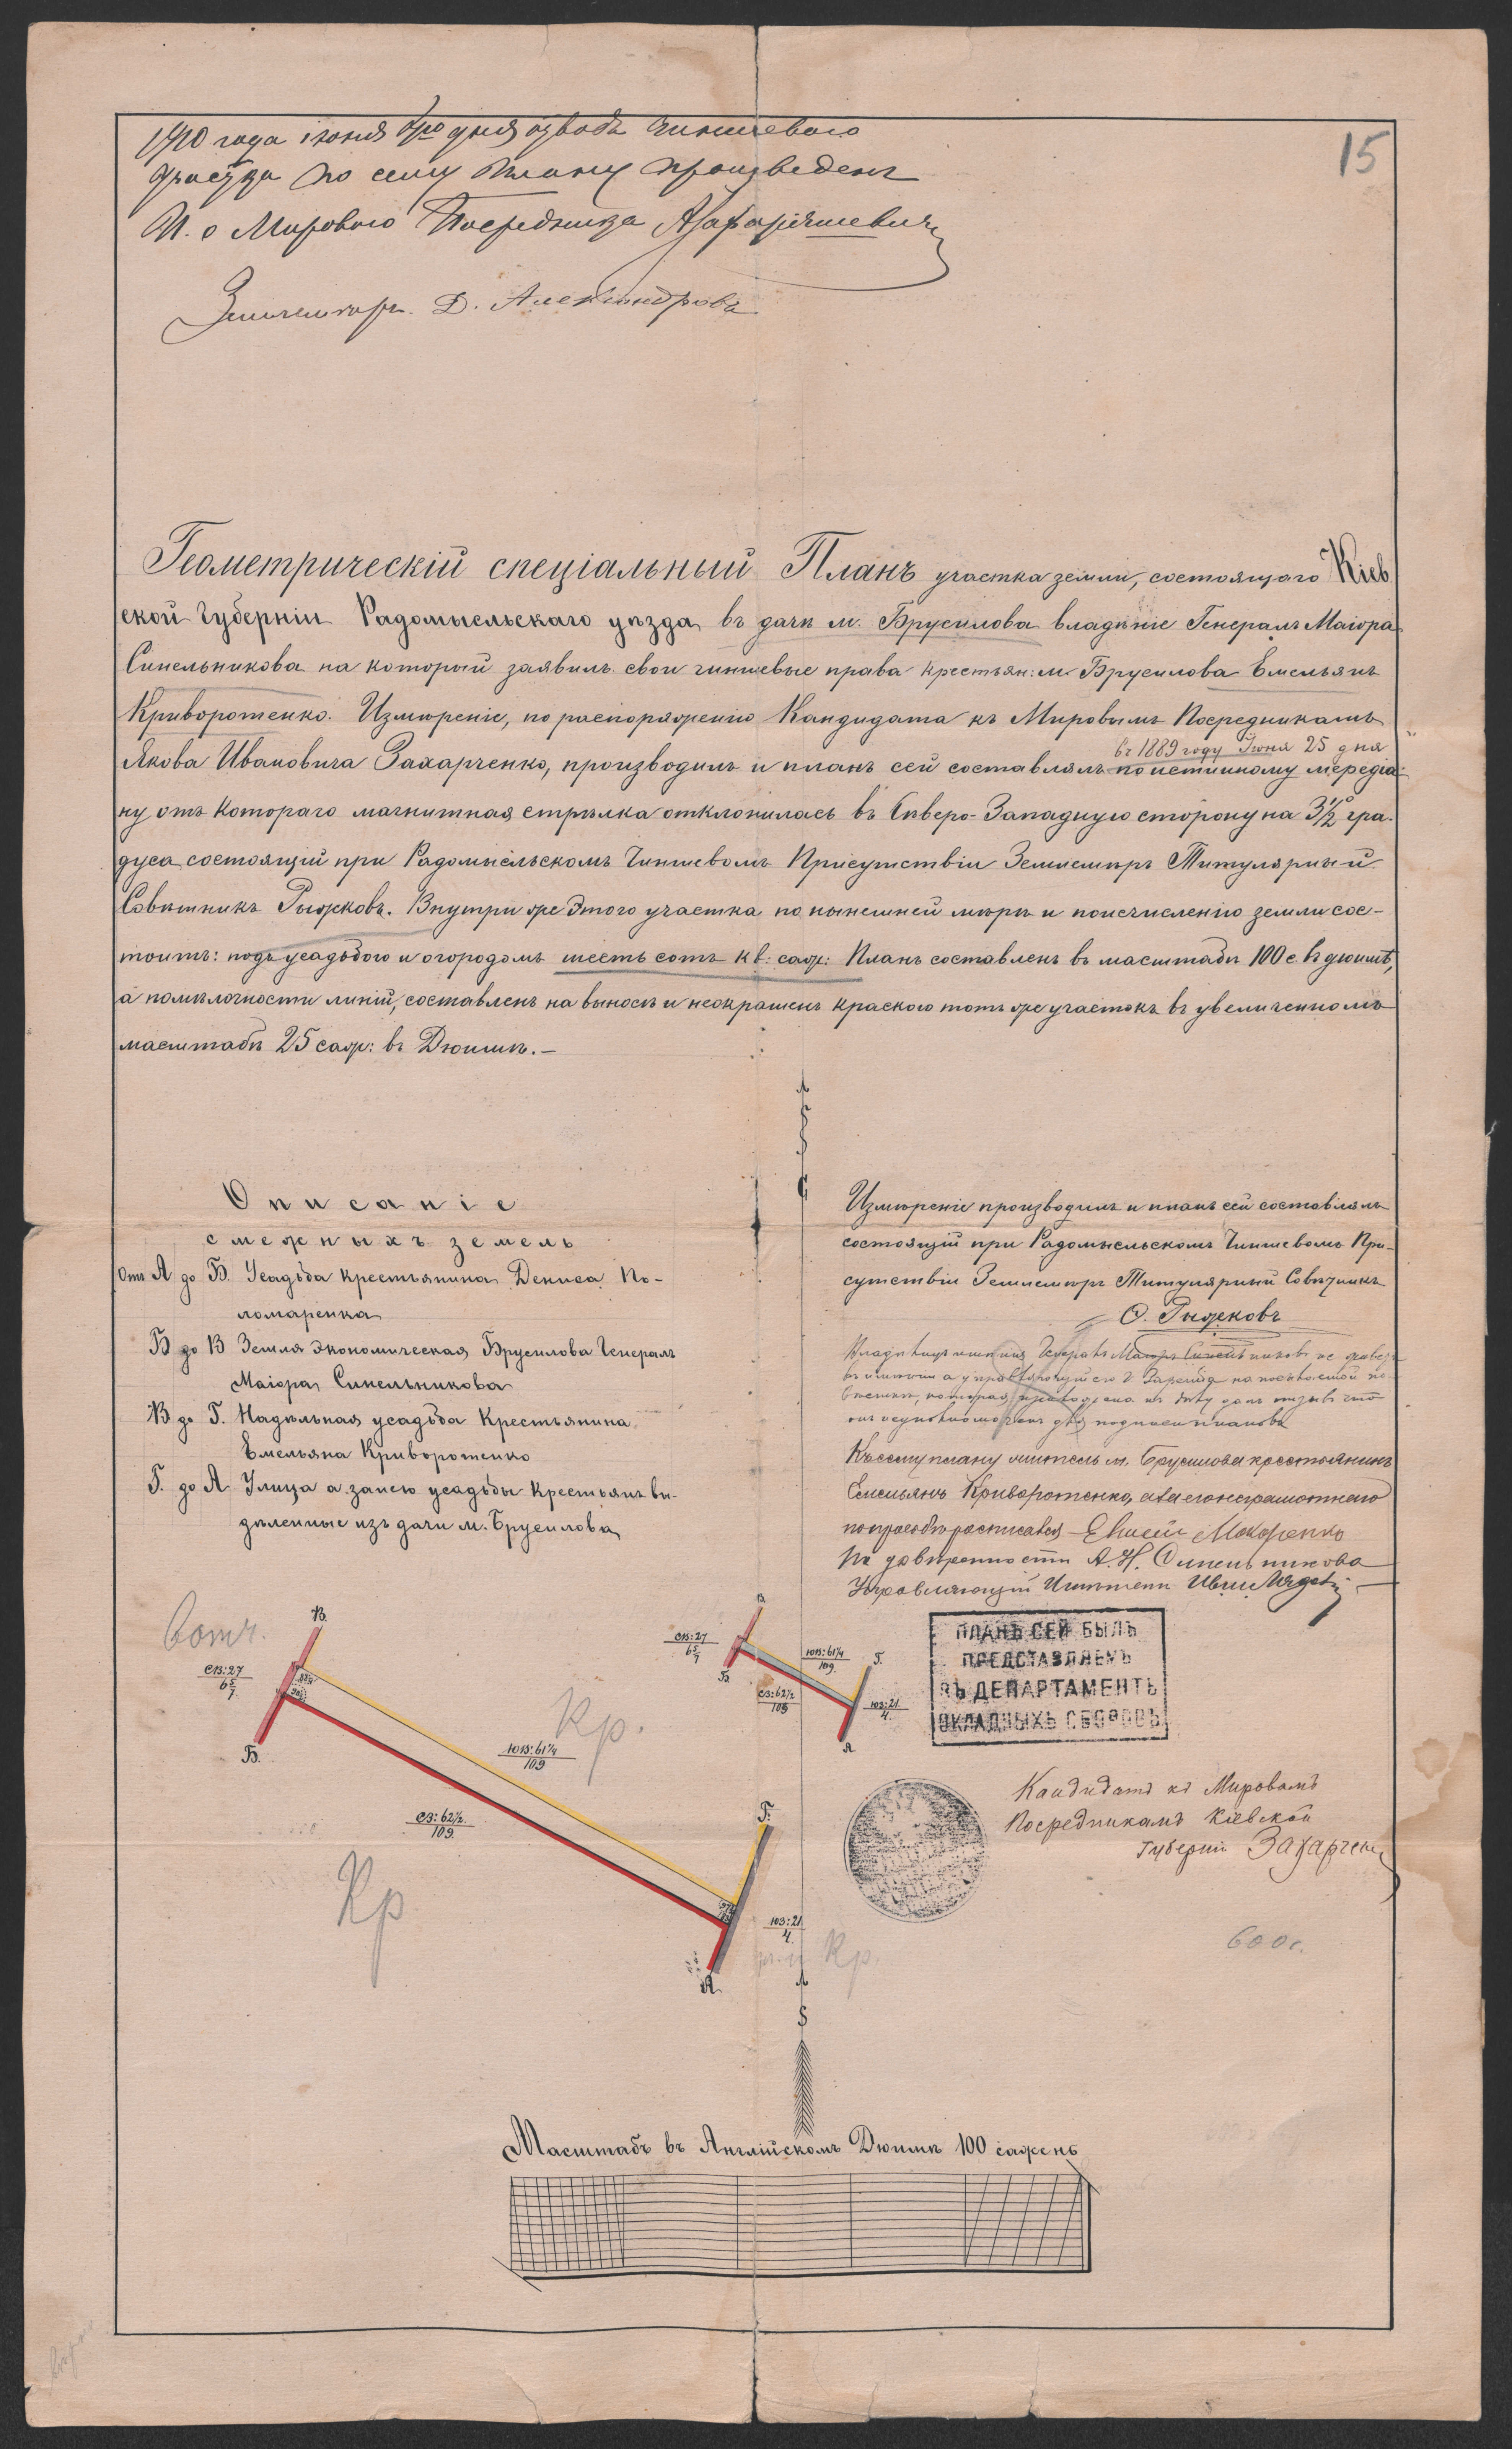 15
1910 года іюня дня отводъ чиншевого
участка по сему плану произведенъ
И. о Мирового Посредника
Землемѣръ Д. Александровъ
Геометрическій спеціальный Планъ участка земли, состоящаго Кіев
ской Губерніи Радомысльскаго уѣзда въ дачѣ м. Брусилова владѣніе Генералъ Маіора
Синельникова на который заявилъ свои чиншевые права крестьян: м. Брусилова Емельянъ
Криворотенко. Измѣреніе, по распоряженію Кандидата къ Мировымъ Посредникамъ
въ 1889 году Іюня 25 дня
Якова Ивановича Захарченко, производилъ и планъ сей составлялъ по истинному меридіа-
ну отъ котораго магнитная стрѣлка отклонилась въ Сѣверо-Западную сторону на 3½° гра-
дуса состоящій при Радомысльскомъ Чиншевомъ Присутствіи Землемѣръ Титулярный
Совѣтникъ Рыжковъ. Внутри же этого участка по нынешней мѣрѣ и поисчисленію земли сос-
тоитъ: подъ усадьбою и огородомъ шесть сотъ кв: саж: Планъ составленъ въ масштабѣ 100 с. въ дюймѣ,
а помѣлочности линій, составленъ на выноскѣ и неокрашенъ краскою тотъ же участокъ въ увеличенномъ
масштабѣ 25 саж: въ Дюймѣ.—
Описаніе
смежныхъ земель
Отъ А до Б. Усадьба крестьянина Дениса По-
ломаренка
Б до В Земля Экономическая Брусилова Генералъ
Маіора Синельникова
В до Г. Надѣльная усадьба Крестьянина
Емельяна Криворотенко
Г. до А Улица а занею усадьбы крестьянъ вы-
дѣленные изъ дачи м. Брусилова
Измѣреніе производилъ и планъ сей составлялъ
состоящій при Радомысльскомъ Чиншевомъ При-
сутствіи Землемѣръ Титулярный Совѣтникъ
Рыжковъ
Владѣлецъ имѣнія Генералъ Маіоръ Синельниковъ не
для подписи плановъ
Къ сему плану житель м. Брусилова крестьянинъ
Емельянъ Криворотенко, а за его неграмотнаго
по просьбѣ росписался Макаренко
По довѣренности А. Н. Синельникова
Управляющій Имѣніемъ
ПЛАНЪ СЕЙ БЫЛЪ
ПРЕДСТАВЛЯЕМЪ
ВЪ ДЕПАРТАМЕНТЪ
ОКЛАДНЫХЪ СБОРОВЪ
В.
СВ:27
Б.
ЮВ:61¼
109
Г.
СЗ:62½
109
ЮЗ:21
4.
А
вотч.
В.
СВ:27
Б.
Кр.
ЮВ:61¼
109
СЗ:62½
109
Г.
Кр
ЮЗ:21
4.
Кр.
А
Кандидатъ къ Мировымъ
Посредникамъ Кіевской
Губерніи Захарченко
600 с.
Масштабъ въ Англійскомъ Дюймѣ 100 сажень